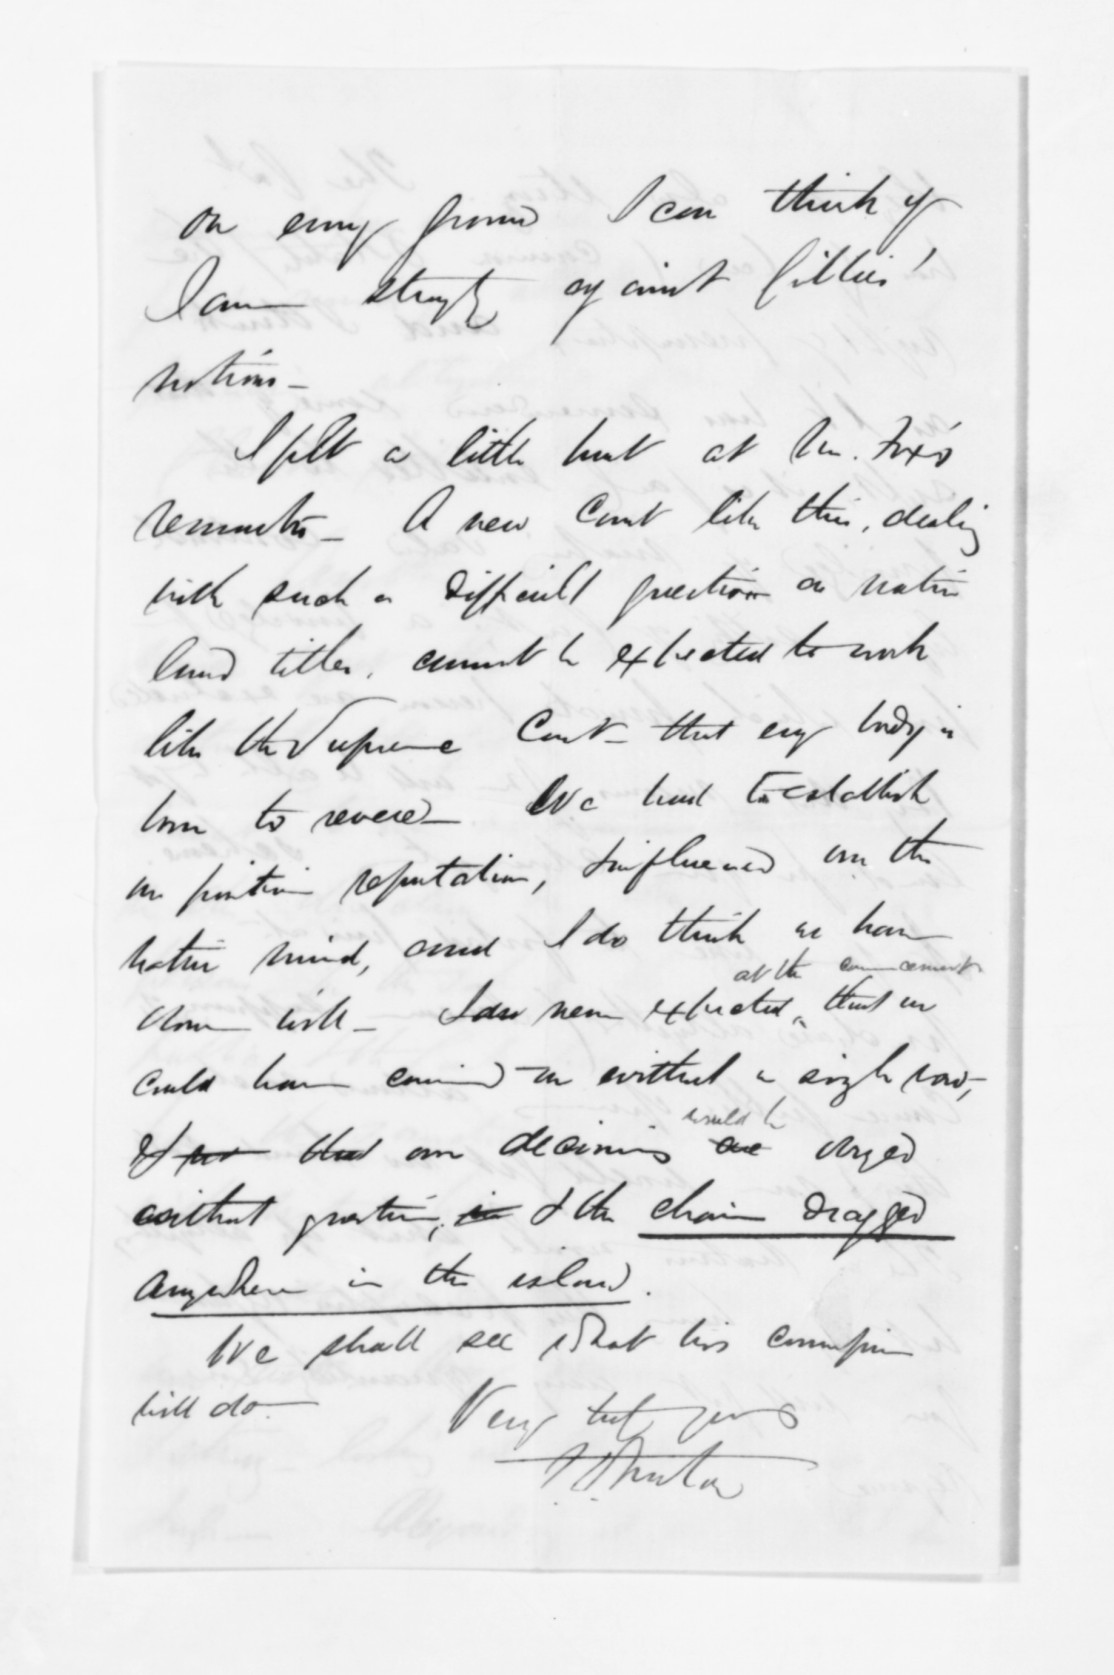 On every ground I can think of
I am strongly against Gillies'
notions -
I felt a little hurt at Mr. Fox's
remarks - A new Court like this, dealing
with such a difficult question as native
land titles, cannot be expected to work
like the Supreme Court - that every body is
born to revere - We had to establish
our position reputation, & influence over the
native mind, and I do think we have
done well - I never expected at the commencement that we
could have carried on without a single row,
& that our decisions would be obeyed
without question, & the chain dragged
anywhere in the island.
We shall see what his campaign
will do -
Very truly yours